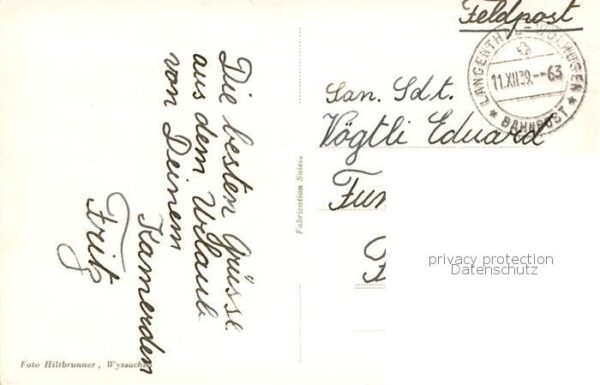 Die besten Grüsse
aus dem Urlaub
von Deinem
Kamerden
Fritz
Foto Hiltbrunner, Wyssach
Fabrication Suisse
Feldpost
LANGENTHAL-WOLHUSEN
11.XII.39.--63
BAHNPOST
San. Sdt.
Vögtli Eduard
privacy protection
Datenschutz